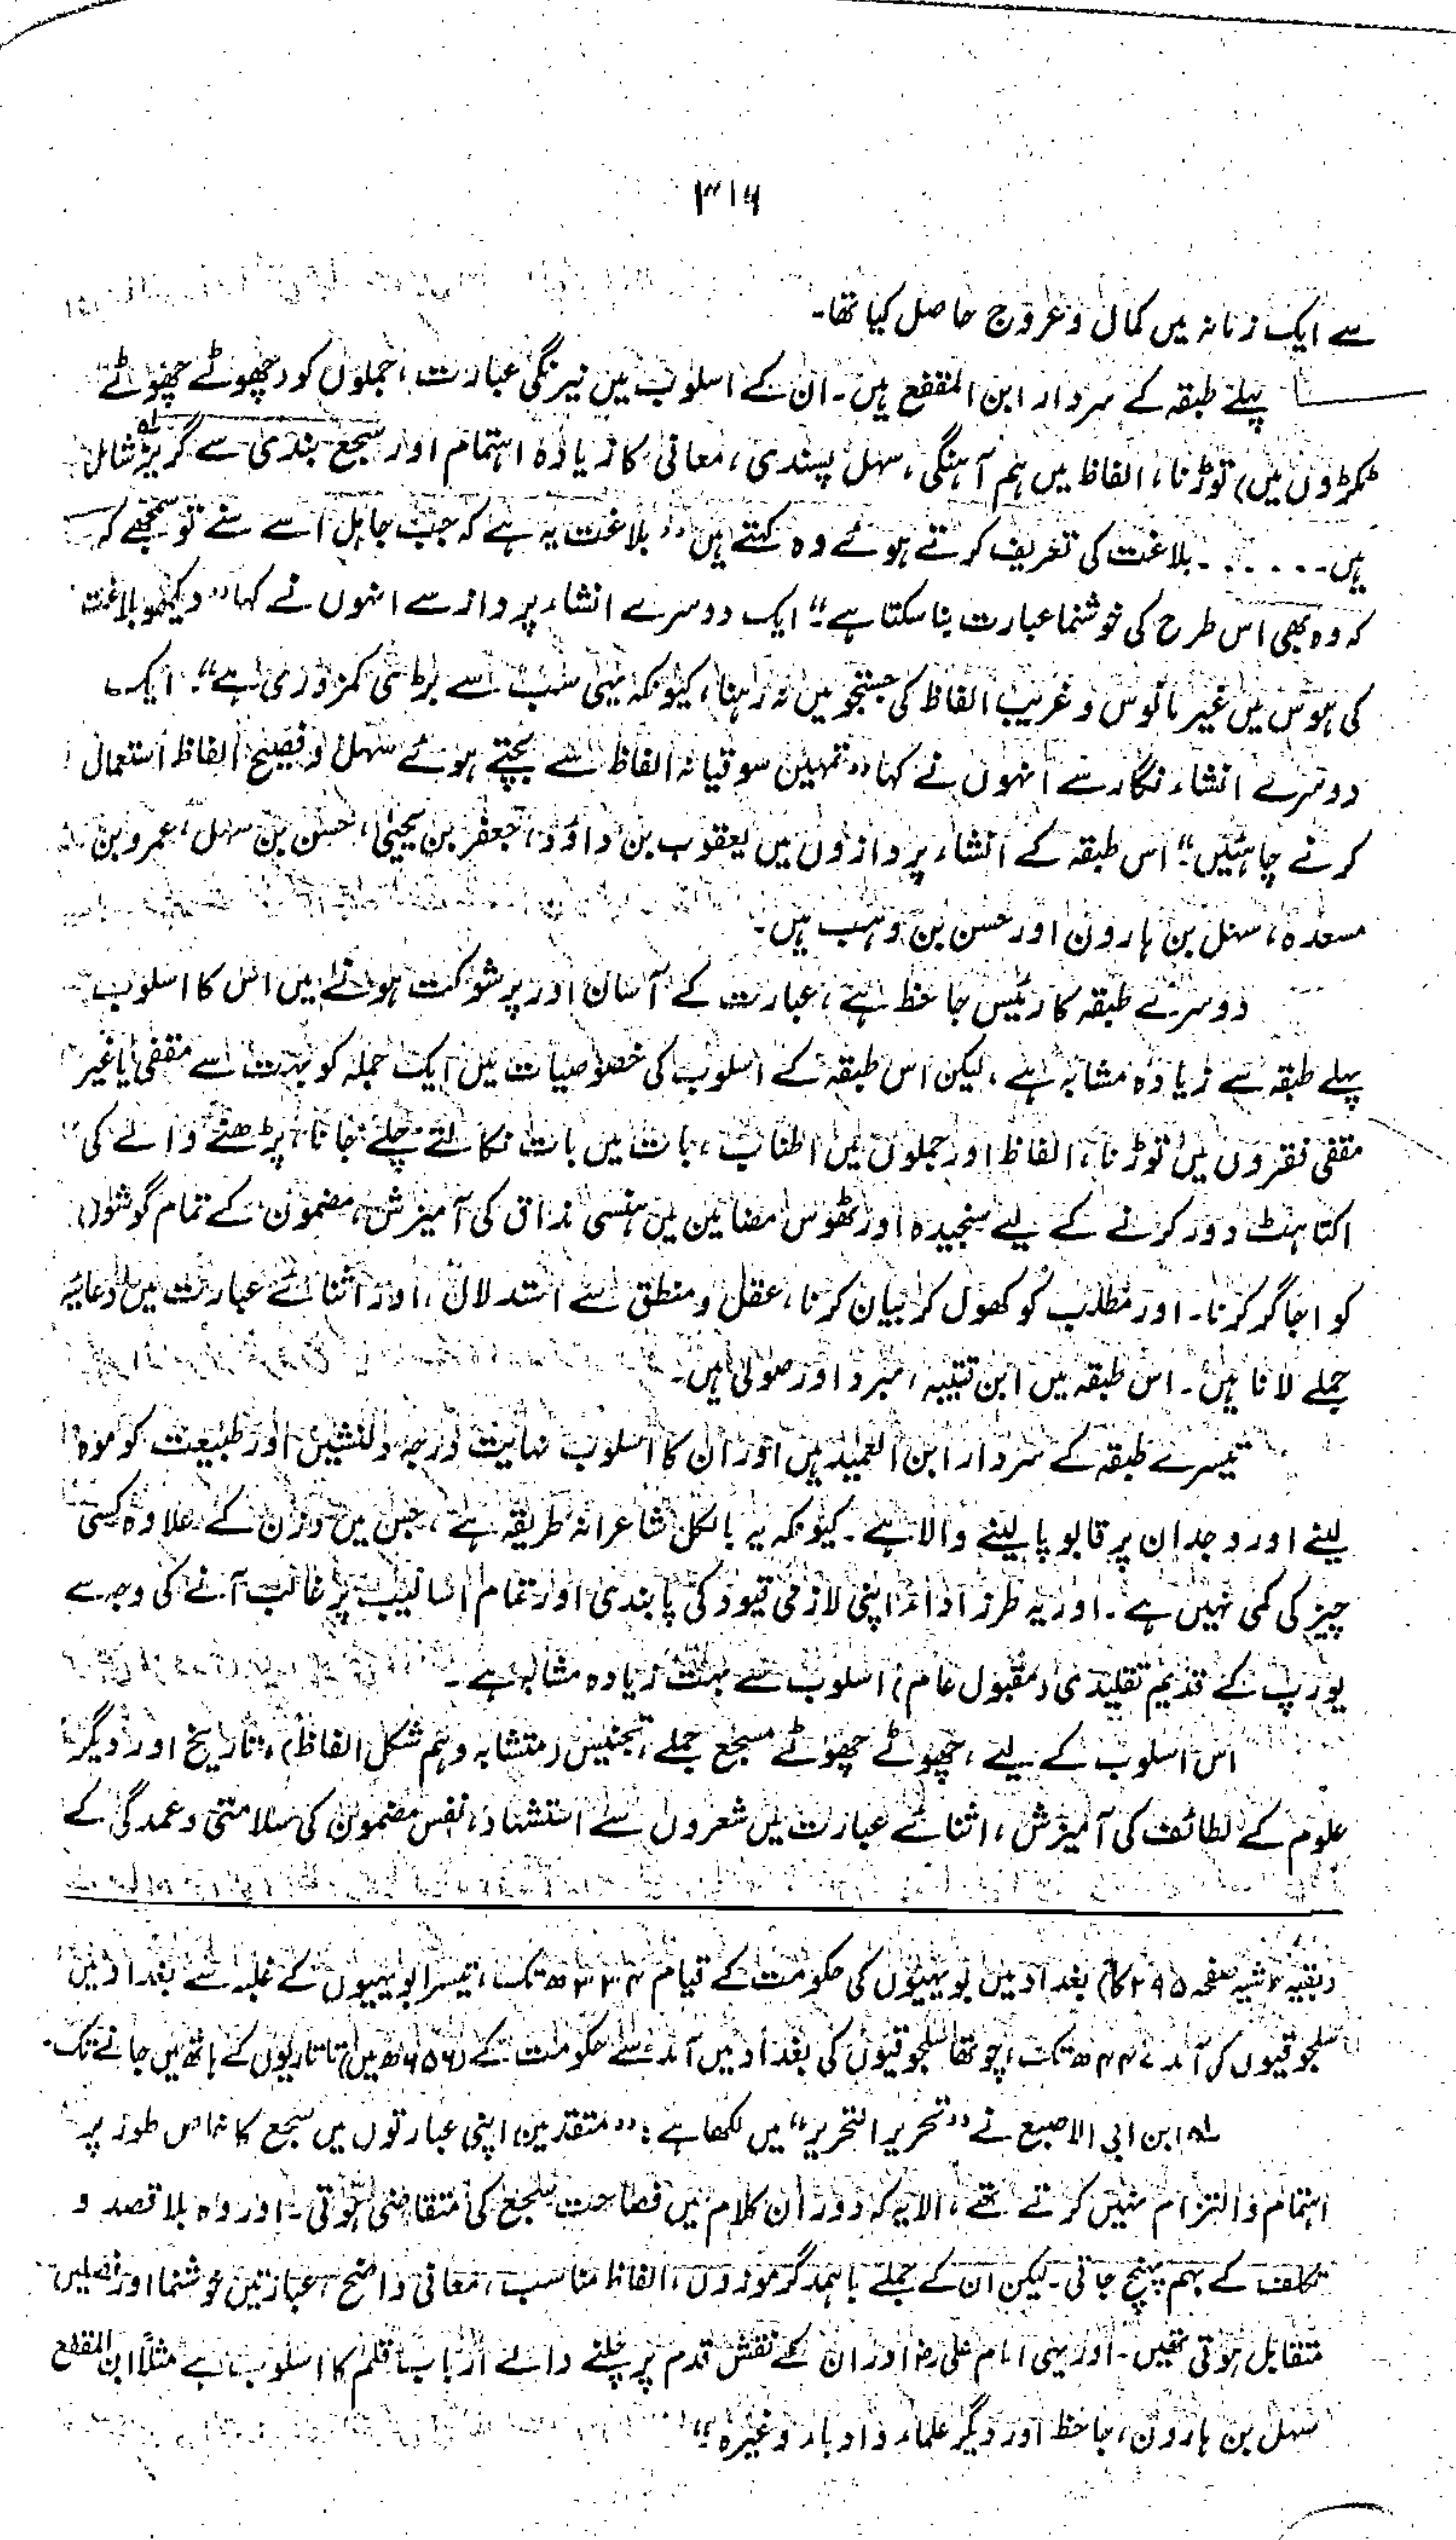 ۳۱۶
سے ایک زمانہ میں کمال و عروج حاصل کیا تھا۔
پہلے طبقہ کے سردار ابن المقفع ہیں۔ ان کے اسلوب میں نیرنگی عبارت، جملوں کو (چھوٹے چھوٹے
ٹکڑوں میں) توڑنا، الفاظ میں ہم آہنگی، سہل پسندی، معانی کا زیادہ اہتمام اور سجع بندی سے گریز لہ شامل
ہیں۔ . . . . . ۔ بلاغت کی تعریف کرتے ہوئے وہ کہتے ہیں ”بلاغت یہ ہے کہ جب جاہل اسے سنے تو سمجھے کہ
کہ وہ بھی اس طرح کی خوشنما عبارت بنا سکتا ہے“۔ ایک دوسرے انشاء پرداز سے انہوں نے کہا ”دیکھو بلاغت
کی ہوس میں غیر مانوس و غریب الفاظ کی جستجو میں نہ رہنا، کیونکہ یہی سب سے بڑی کمزوری ہے“۔ ایک
دوسرے انشاء نگار سے انہوں نے کہا ”تمہیں سوقیانہ الفاظ سے بچتے ہوئے سہل و فصیح الفاظ استعمال
کرنے چاہئیں“۔ اس طبقہ کے انشاء پردازوں میں یعقوب بن داؤد، جعفر بن یحییٰ، حسن بن سہل، عمرو بن
مسعدہ، سہل بن ہارون اور حسن بن وہب ہیں۔
دوسرے طبقہ کا رئیس جاحظ ہے، عبارت کے آسان اور پرشوکت ہونے میں اس کا اسلوب
پہلے طبقہ سے زیادہ مشابہ ہے، لیکن اس طبقہ کے اسلوب کی خصوصیات میں ایک جملہ کو بہت سے مقفی یا غیر
مقفی فقروں میں توڑنا، الفاظ اور جملوں میں اطناب، بات میں بات نکالتے چلے جانا، پڑھنے والے کی
اکتاہٹ دور کرنے کے لیے سنجیدہ اور ٹھوس مضامین میں ہنسی مذاق کی آمیزش، مضمون کے تمام گوشوں
کو اجاگر کرنا۔ اور مطلب کو کھول کر بیان کرنا، عقل و منطق سے استدلال، اور اثنائے عبارت میں دعائیہ
جملے لانا ہیں۔ اس طبقہ میں ابن قتیبہ، مبرد اور صولی ہیں۔
تیسرے طبقہ کے سردار ابن العمید ہیں اور ان کا اسلوب نہایت درجہ دلنشین اور طبیعت کو موہ
لینے اور وجدان پر قابو پا لینے والا ہے۔ کیونکہ یہ بالکل شاعرانہ طریقہ ہے، جس میں وزن کے علاوہ کسی
چیز کی کمی نہیں ہے۔ اور یہ طرز اداء اپنی لازمی قیود کی پابندی اور تمام اسالیب پر غالب آنے کی وجہ سے
یورپ کے قدیم تقلیدی (مقبول عام) اسلوب سے بہت زیادہ مشابہ ہے۔
اس اسلوب کے لیے، چھوٹے چھوٹے مسجع جملے، تجنیس (متشابہ و ہم شکل الفاظ)، تاریخ اور دیگر
علوم کے لطائف کی آمیزش، اثنائے عبارت میں شعروں سے استشہاد، نفس مضمون کی سلامتی و عمدگی کے
(بقیہ حاشیہ صفحہ ۲۹۵ کا) بغداد میں بویہیوں کی حکومت کے قیام ۳۳۴ھ تک، تیسرا بویہیوں کے غلبہ سے بغداد میں
سلجوقیوں کی آمد ۴۴۷ھ تک، چوتھا سلجوقیوں کی بغداد میں آمد سے حکومت کے (۶۵۶ھ میں) تاتاریوں کے ہاتھ میں جانے تک۔
لہ ابن ابی الاصبع نے ”تحریر التحریر“ میں لکھا ہے: ”متقدمین اپنی عبارتوں میں سجع کا خاص طور پر
اہتمام و التزام نہیں کرتے تھے، الا یہ کہ دوران کلام میں فصاحت سجع کی متقاضی ہوتی۔ اور وہ بلا قصد و
تکلف کے بہم پہنچ جاتی۔ لیکن ان کے جملے باہمدگر موزوں، الفاظ مناسب، معانی واضح، عبارتیں خوشنما اور فصلیں
متقابل ہوتی تھیں۔ اور یہی امام علی رضؓ اور ان کے نقش قدم پر چلنے والے ارباب قلم کا اسلوب ہے مثلاً ابن المقفع
سہل بن ہارون، جاحظ اور دیگر علماء و ادباء وغیرہ“